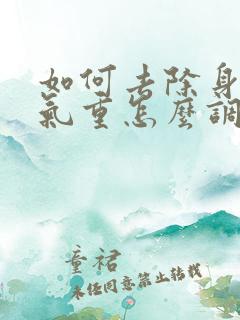 如何去除身
氣重怎麼調
童裙
未经同意禁止转载